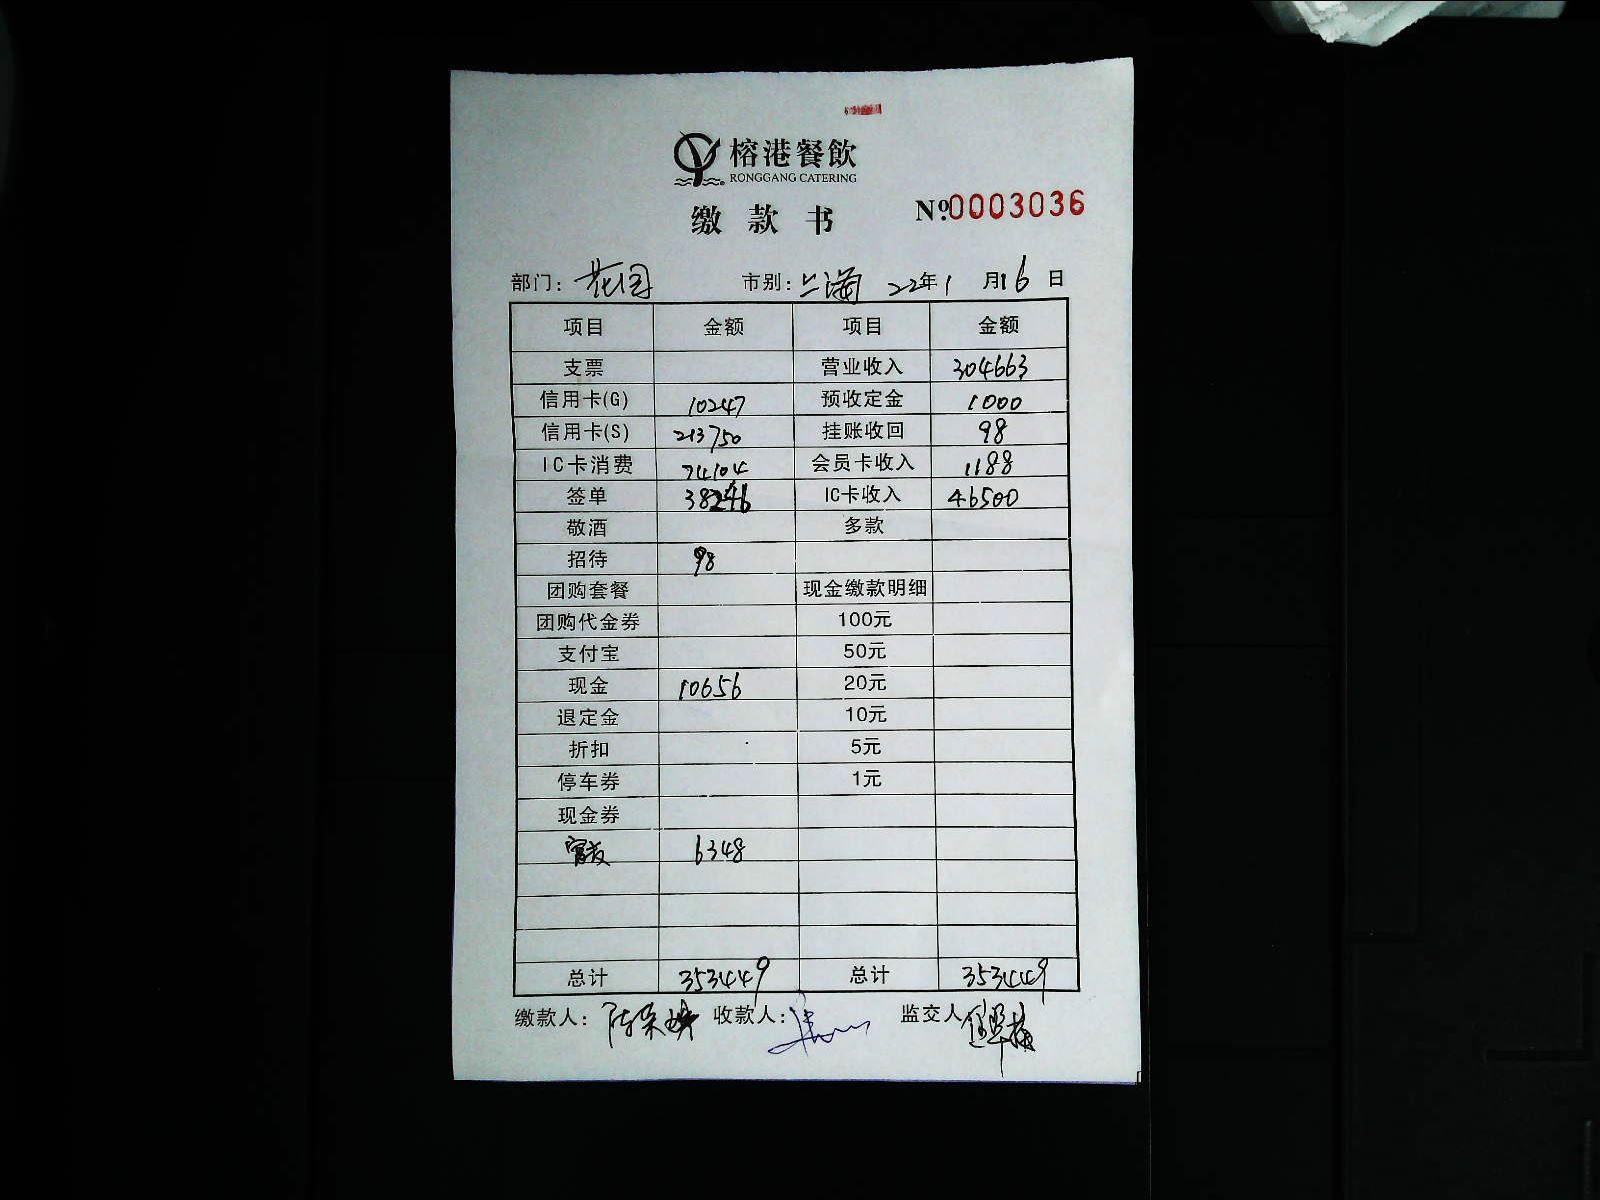 榕港餐飲
RONGGANG CATERING
缴款书 Nº.0003036
部门: 花园 市别: 上海 22年1月16日
项目 金额 项目 金额
支票 营业收入 304663
信用卡(G) 10247 预收定金 1000
信用卡(S) 213750 挂账收回 98
IC卡消费 74104 会员卡收入 1188
签单 38246 IC卡收入 46500
敬酒 多款
招待 98
团购套餐 现金缴款明细
团购代金券 100元
支付宝 50元
现金 10656 20元
退定金 10元
折扣 5元
停车券 1元
现金券
6348
总计 353449 总计 353449
缴款人: 收款人: 监交人